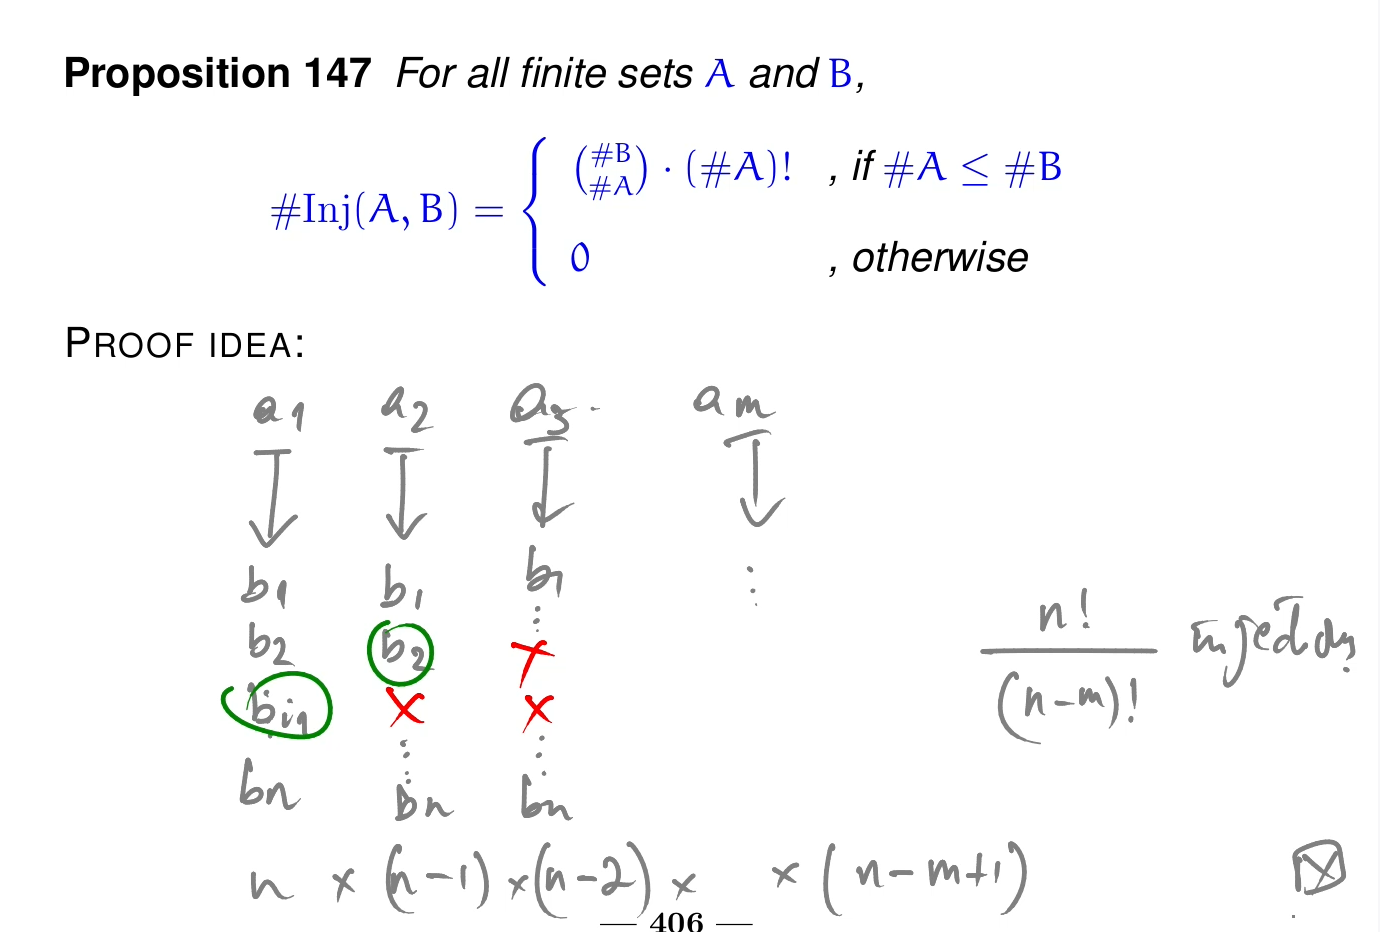 Proposition 147 For all finite sets A and B,
#Inj(A, B) = { (#B #A) · (#A)! , if #A ≤ #B
0 , otherwise
PROOF IDEA:
a1 a2 a3 · am
b1 b1 b1 ⋮
b2 b2 ×
bi1 × ×
bn bn bn
n!
(n-m)!
n × (n-1) × (n-2) × × (n-m+1)
— 406 —